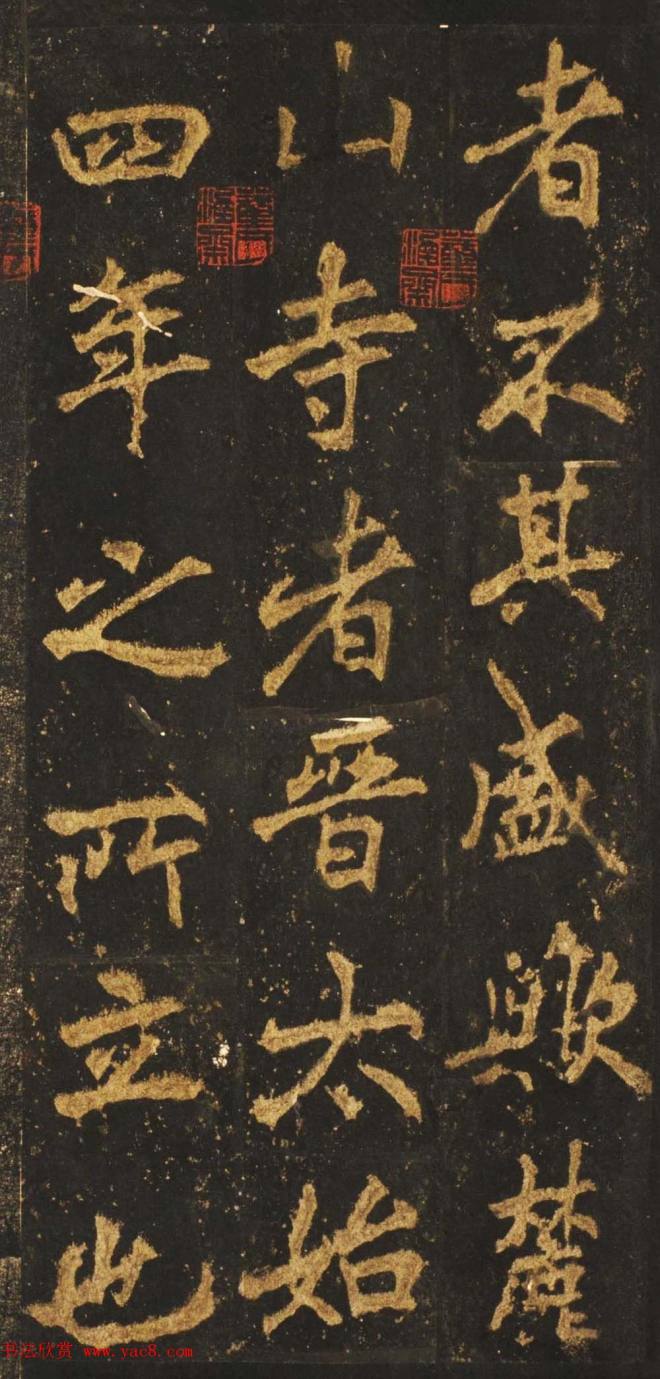 者不其盛歟麓
山寺者晉太始
四年之所立也
书法欣赏 www.yac8.com